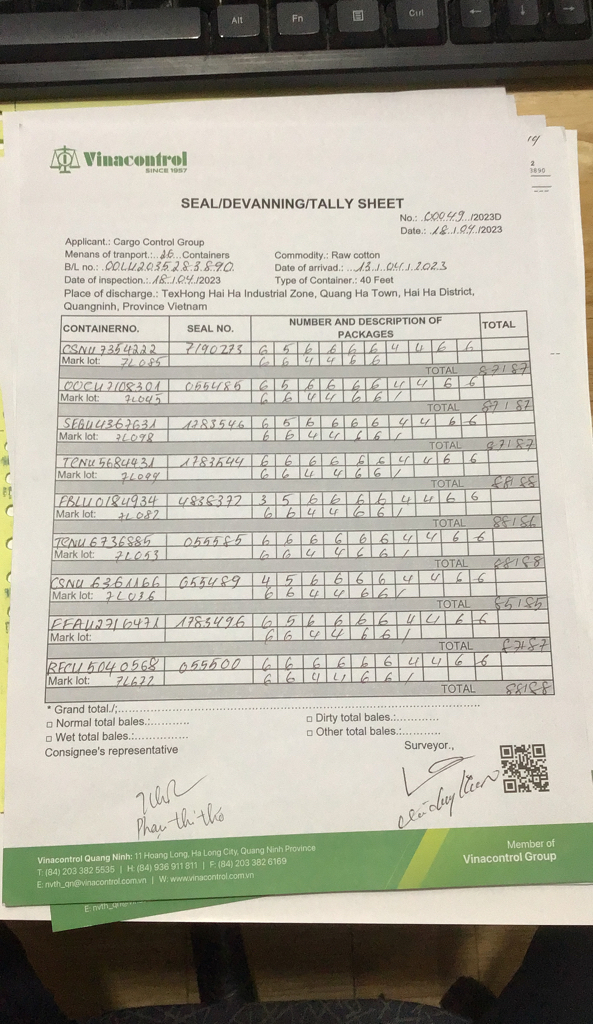 Alt
Fn
Ctrl
Vinacontrol
SINCE 1957
SEAL/DEVANNING/TALLY SHEET
No.: 00049 /2023D
Date.: 18 / 04 /2023
Applicant.: Cargo Control Group
Menans of tranport.: 26 Containers
Commodity.: Raw cotton
B/L no.: OOLU2035283890
Date of arrivad.: 13 / 04 / 2023
Date of inspection.: 18 / 04 /2023
Type of Container.: 40 Feet
Place of discharge.: TexHong Hai Ha Industrial Zone, Quang Ha Town, Hai Ha District,
Quangninh, Province Vietnam
CONTAINERNO. SEAL NO. NUMBER AND DESCRIPTION OF PACKAGES TOTAL
CSNU 7354222 7190273 6 5 6 6 6 6 4 4 6 6
Mark lot: 7L085 6 6 4 4 6 6
TOTAL 87187
OOCU7108301 055485 6 5 6 6 6 6 4 4 6 6
Mark lot: 7L045 6 6 4 4 6 6 /
TOTAL 87187
SEGU4367631 1783546 6 5 6 6 6 6 4 4 6 6
Mark lot: 7L098 6 6 4 4 6 6 /
TOTAL 87187
TCNU5684431 1783544 6 6 6 6 6 6 4 4 6 6
Mark lot: 7L094 6 6 4 4 6 6 /
TOTAL 88188
FBLU0184934 4838372 3 5 6 6 6 6 4 4 6 6
Mark lot: 7L082 6 6 4 4 6 6 /
TOTAL
TCNU6736885 055585 6 6 6 6 6 6 4 4 6 6
Mark lot: 7L053 6 6 4 4 6 6 /
TOTAL 88188
CSNU6361166 055489 4 5 6 6 6 6 4 4 6 6
Mark lot: 7L036 6 6 4 4 6 6 /
TOTAL 85185
FFAU2716471 1783496 6 5 6 6 6 6 4 4 6 6
Mark lot: 6 6 4 4 6 6 /
TOTAL 87187
BECU5040568 055500 6 6 6 6 6 6 4 4 6 6
Mark lot: 7L672 6 6 4 4 6 6 /
TOTAL 88188
* Grand total./;
□ Normal total bales.:
□ Dirty total bales.:
□ Wet total bales.:
□ Other total bales.:
Consignee's representative
Surveyor.,
Phạm thị thỏ
Vinacontrol Quang Ninh: 11 Hoang Long, Ha Long City, Quang Ninh Province
T: (84) 203 382 5535 | H: (84) 936 911 811 | F: (84) 203 382 6169
E: nvth_qn@vinacontrol.com.vn | W: www.vinacontrol.com.vn
Member of
Vinacontrol Group